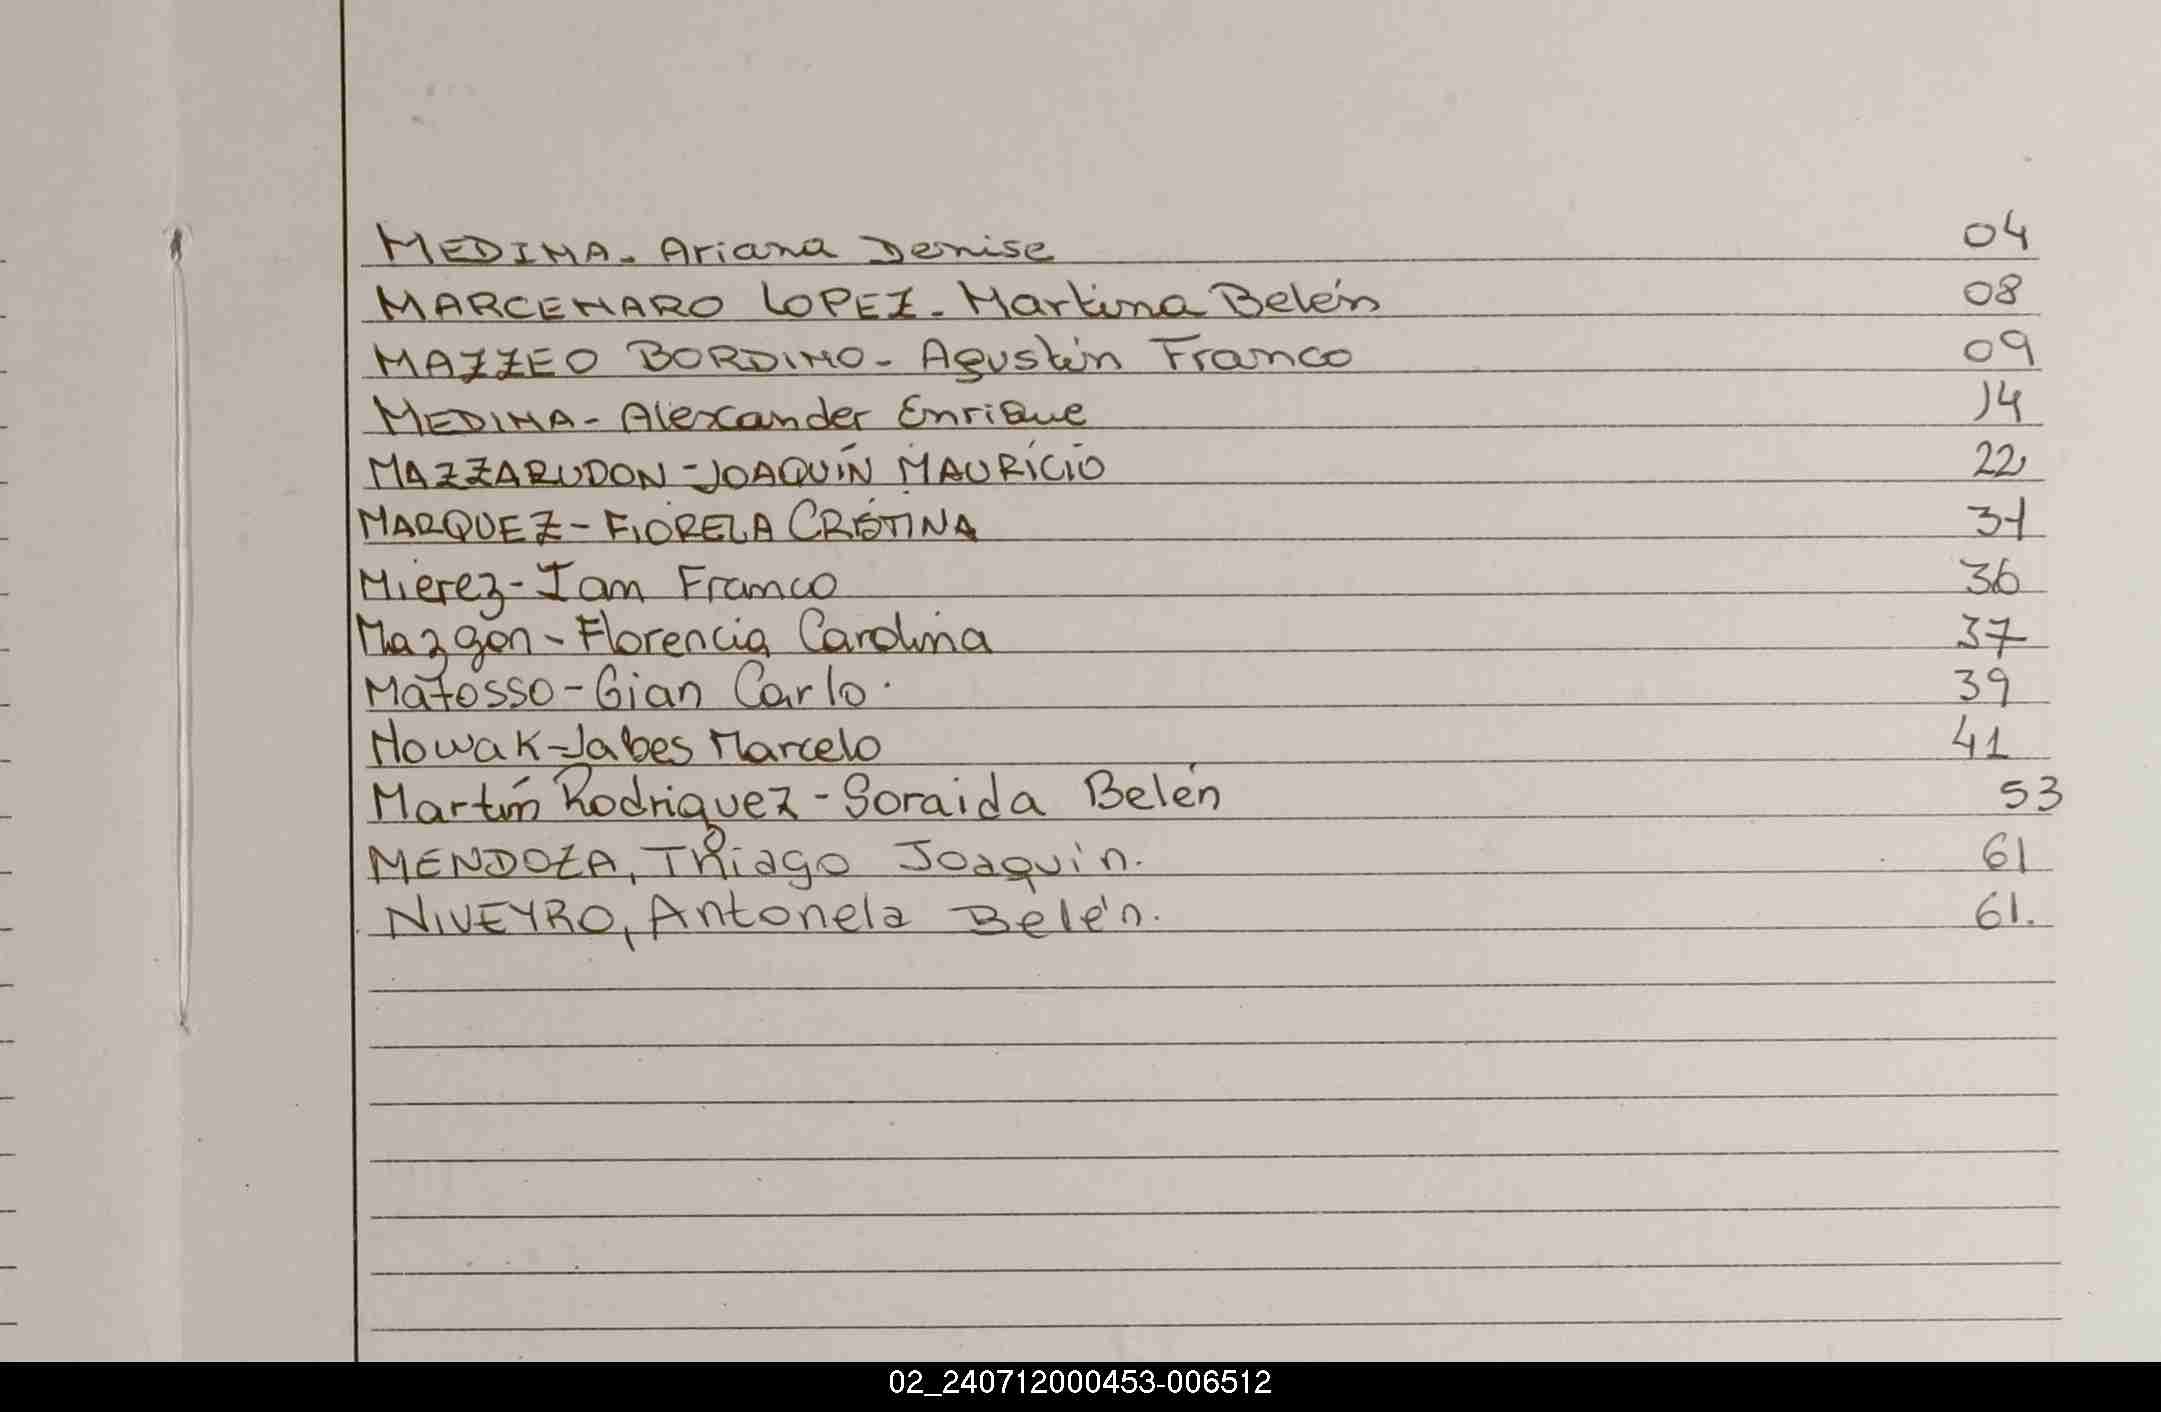 MEDINA. Ariana Denise 04
MARCENARO LOPEZ. Martina Belén 08
MAZZEO BORDINO- Agustín Franco 09
MEDINA- Alexander Enrique 14
MAZZARUDON-JOAQUÍN MAURICIO 22
MARQUEZ-FIORELA CRISTINA 31
Mierez-Ian Franco 36
Mazgon-Florencia Carolina 37
Matosso-Gian Carlo. 39
Nowak-Jabes Marcelo 41
Martín Rodriguez-Soraida Belén 53
MENDOZA, Thiago Joaquín. 61
NIVEYRO, Antonela Belén. 61.
02_240712000453-006512